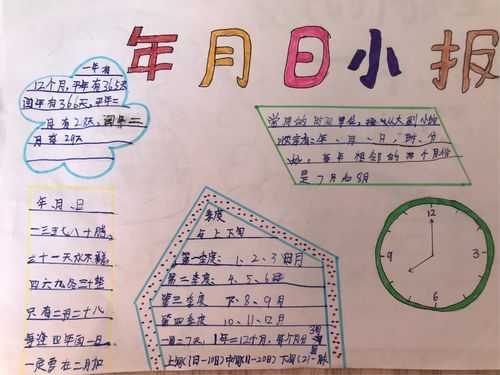 年月日小报
一年有
12个月,平年有365天
闰年有366天,平年二
月有28天,闰年二
月有29天
常用的时间单位,按从大到小的
顺序有:年、月、日、时、分
秒。每年相邻的两个月份
是7月和8月
年、月、日
一三五七八十腊,
三十一天永不差,
四六九冬三十整
只有二月二十八
每逢四年闰一日
一定要在二月加
季度
与上下旬
第一季度:1、2、3月
第二季度:4、5、6
第三季度 7、8、9月
第四季度 10、11、12月
一日=7天,1年=12个月,每个月分3旬
上旬(1日-10日)中旬(11-20日)下旬(21-
12
3
6
9